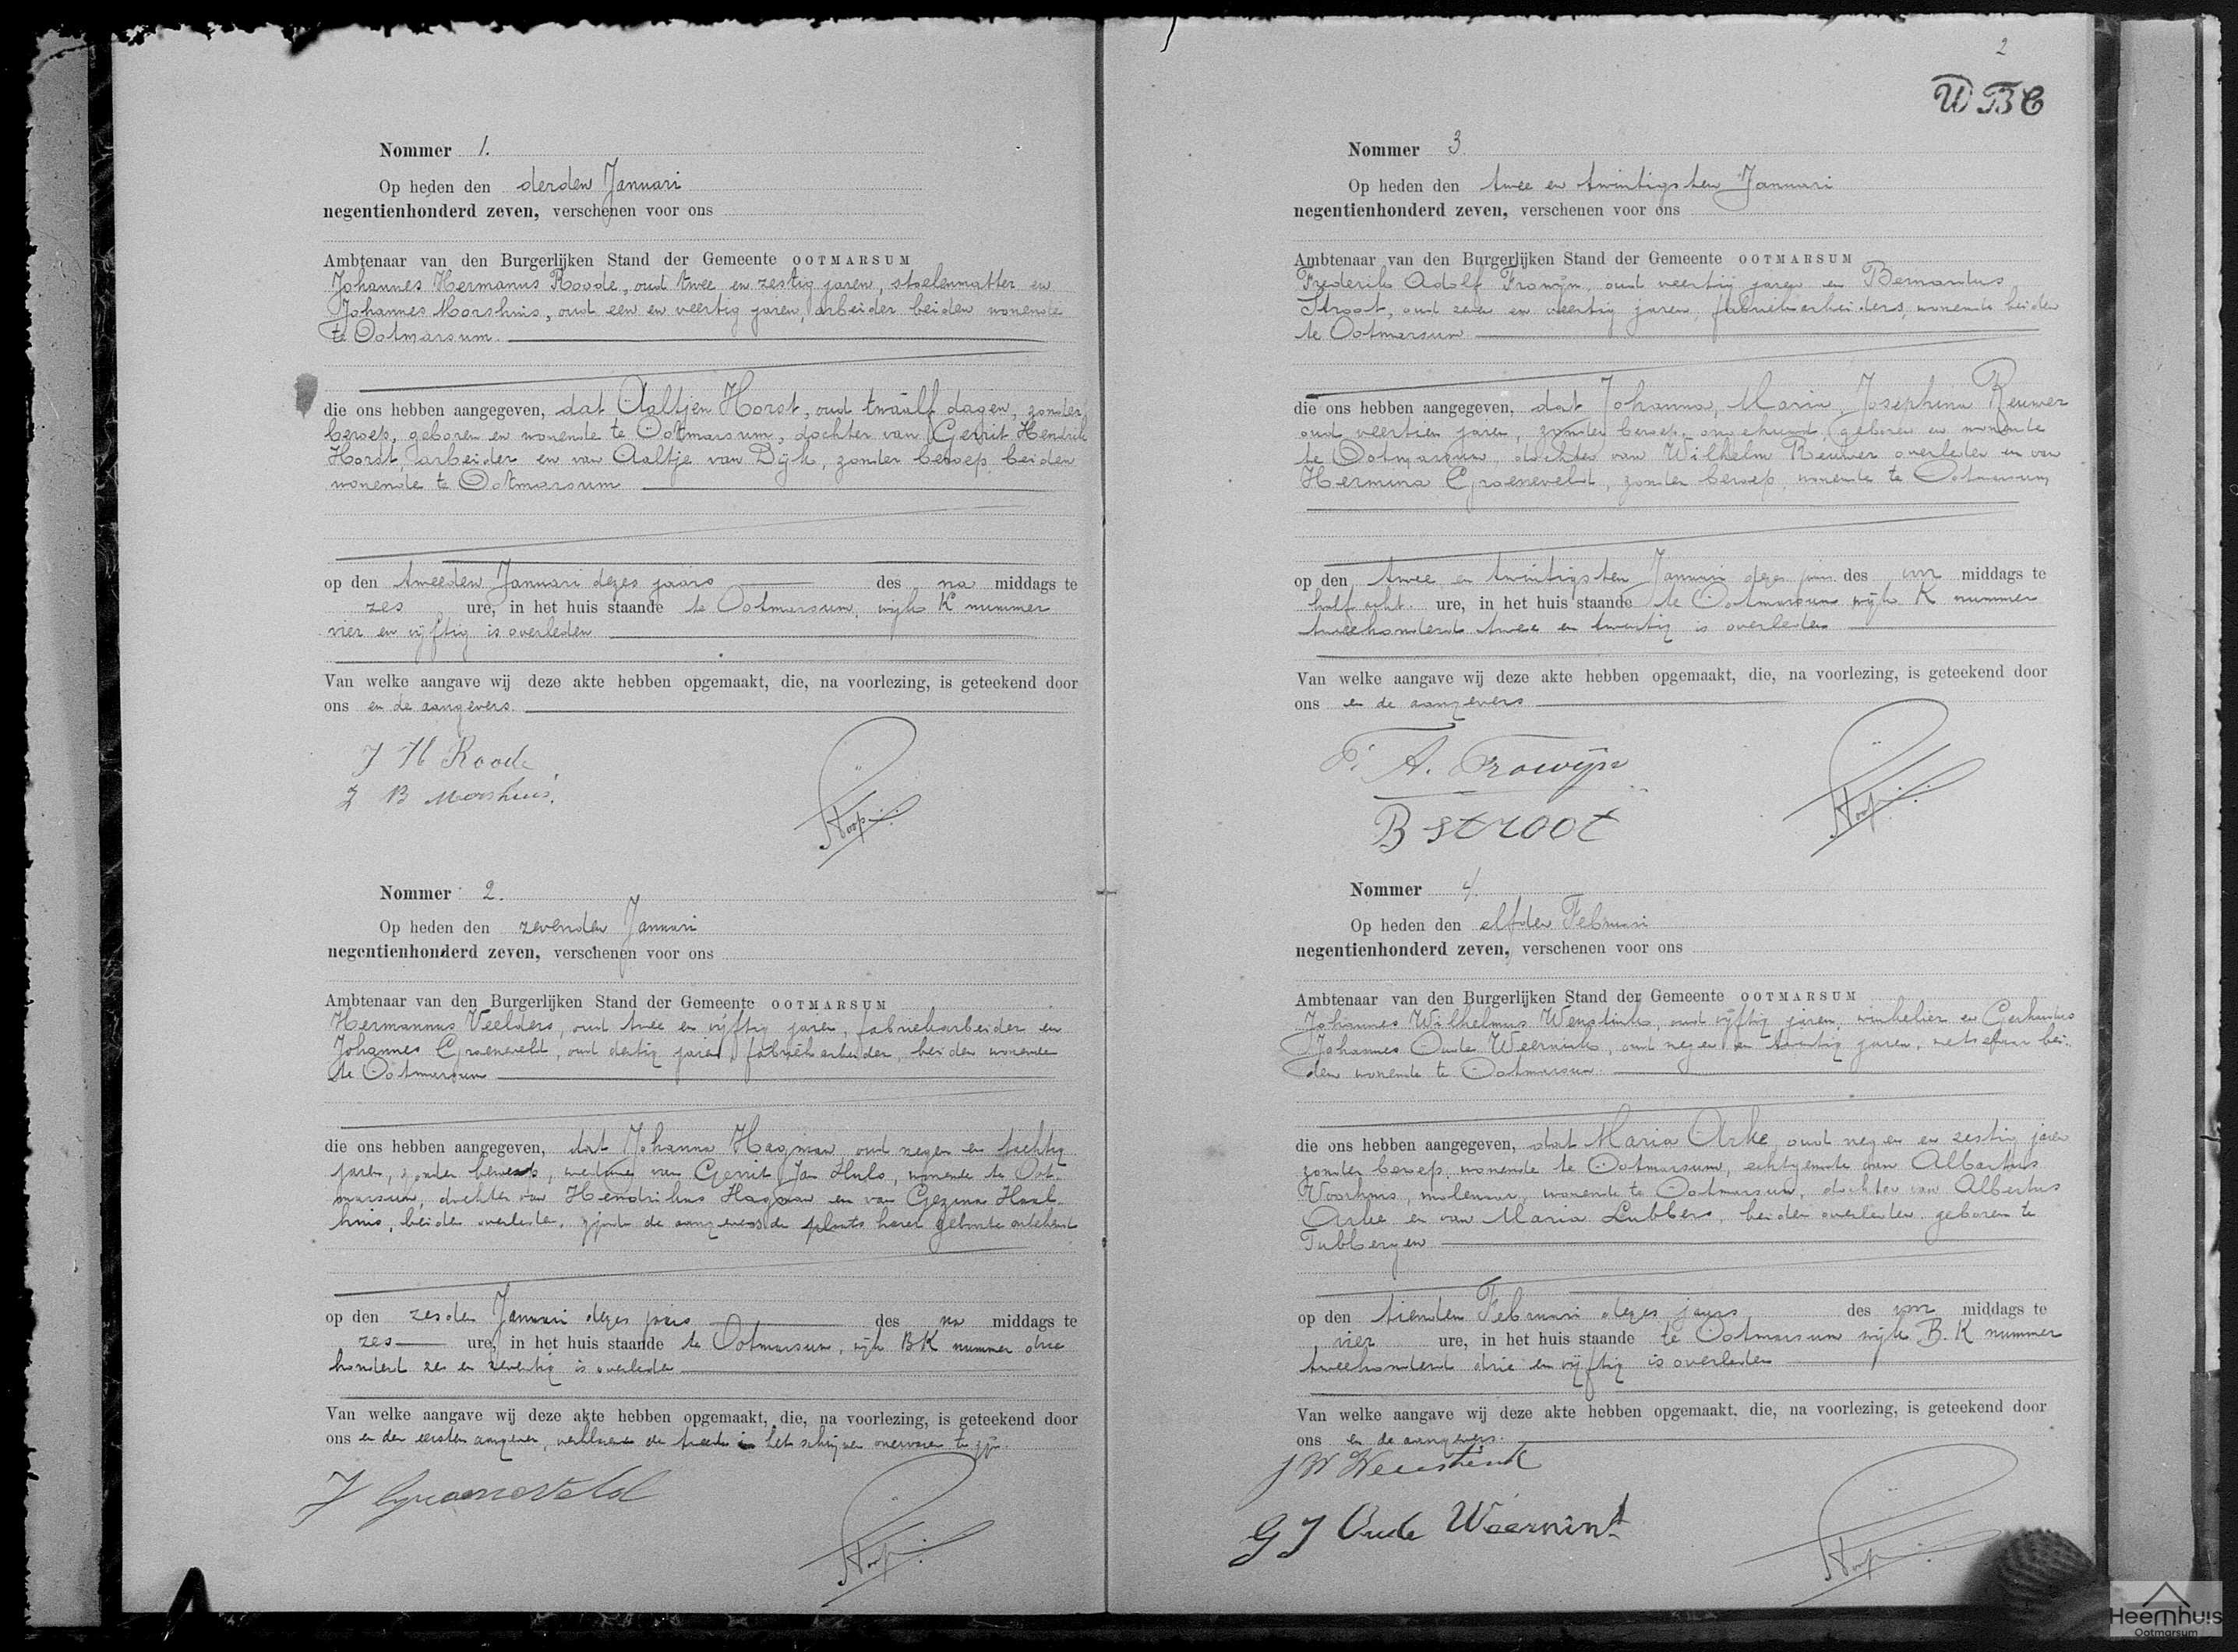 Nommer 1.
Op heden den derden Januari
negentienhonderd zeven, verschenen voor ons
Ambtenaar van den Burgerlijken Stand der Gemeente OOTMARSUM
Johannes Hermanus Roode, oud twee en zestig jaren, stoelenmatter en
Johannes Morshuis, oud een en veertig jaren, arbeider beiden wonende
te Ootmarsum.
die ons hebben aangegeven, dat Aaltjen Horst, oud twaalf dagen, zonder
beroep, geboren en wonende te Ootmarsum, dochter van Gerrit Hendrik
Horst, arbeider en van Aaltje van Dijk, zonder beroep, beiden
wonende te Ootmarsum
op den tweeden Januari dezes jaars des na middags te
zes ure, in het huis staande te Ootmarsum, wijk K nummer
vier en vijftig is overleden
Van welke aangave wij deze akte hebben opgemaakt, die, na voorlezing, is geteekend door
ons en de aangevers.
J H Roode
J B Morshuis.
Stoop
Nommer 2.
Op heden den zevenden Januari
negentienhonderd zeven, verschenen voor ons
Ambtenaar van den Burgerlijken Stand der Gemeente OOTMARSUM
Hermannus Veelders, oud twee en vijftig jaren, fabriekarbeider en
Johannes Groeneveld, oud dertig jaren, fabriekarbeider, beiden wonende
te Ootmarsum
die ons hebben aangegeven, dat Johanna Hagman oud negen en tachtig
jaren, zonder beroep, weduwe van Gerrit Jan Huls, wonende te Oot-
marsum, dochter van Hendrikus Hagman en van Gezina Haal
huis, beiden overleden, zijnde de aangevers de plaats harer geboorte onbekend
op den zesden Januari dezes jaars des na middags te
zes ure, in het huis staande te Ootmarsum, wijk BK nummer drie
honderd zes en zeventig is overleden
Van welke aangave wij deze akte hebben opgemaakt, die, na voorlezing, is geteekend door
ons en den eersten aangever, verklarende de tweede in het schrijven onervaren te zijn.
J Groeneveld
Stoop
2
WBC
Nommer 3
Op heden den twee en twintigsten Januari
negentienhonderd zeven, verschenen voor ons
Ambtenaar van den Burgerlijken Stand der Gemeente OOTMARSUM
Frederik Adolf Frowijn, oud veertig jaren en Bernardus
Stroot, oud zeven en veertig jaren, fabriekarbeiders, wonende beiden
te Ootmarsum
die ons hebben aangegeven, dat Johanna, Maria, Josephina Reuwer
oud veertien jaren, zonder beroep, ongehuwd, geboren en wonende
te Ootmarsum, dochter van Wilhelm Reuwer overleden en van
Hermina Groeneveld, zonder beroep, wonende te Ootmarsum
op den twee en twintigsten Januari dezes jaars des voor middags te
half acht ure, in het huis staande te Ootmarsum wijk K nummer
tweehonderd twee en twintig is overleden
Van welke aangave wij deze akte hebben opgemaakt, die, na voorlezing, is geteekend door
ons en de aangevers
F. A. Frowijn
B stroot
Stoop
Nommer 4.
Op heden den elfden Februari
negentienhonderd zeven, verschenen voor ons
Ambtenaar van den Burgerlijken Stand der Gemeente OOTMARSUM
Johannes Wilhelmus Wenstink, oud vijftig jaren, winkelier en Gerhardus
Johannes Oude Weernink, oud negen en twintig jaren, metselaar bei-
den wonende te Ootmarsum.
die ons hebben aangegeven, dat Maria Arke oud negen en zestig jaren
zonder beroep, wonende te Ootmarsum, echtgenoote van Albertus
Voorhuis, molenaar, wonende te Ootmarsum, dochter van Albertus
Arke en van Maria Lubbers, beiden overleden, geboren te
Tubbergen
op den tienden Februari dezes jaars des voor middags te
vier ure, in het huis staande te Ootmarsum wijk B.K nummer
tweehonderd drie en vijftig is overleden
Van welke aangave wij deze akte hebben opgemaakt, die, na voorlezing, is geteekend door
ons en de aangevers.
J W Wenstink
G J Oude Weernink
Stoop
Heemhuis
Ootmarsum